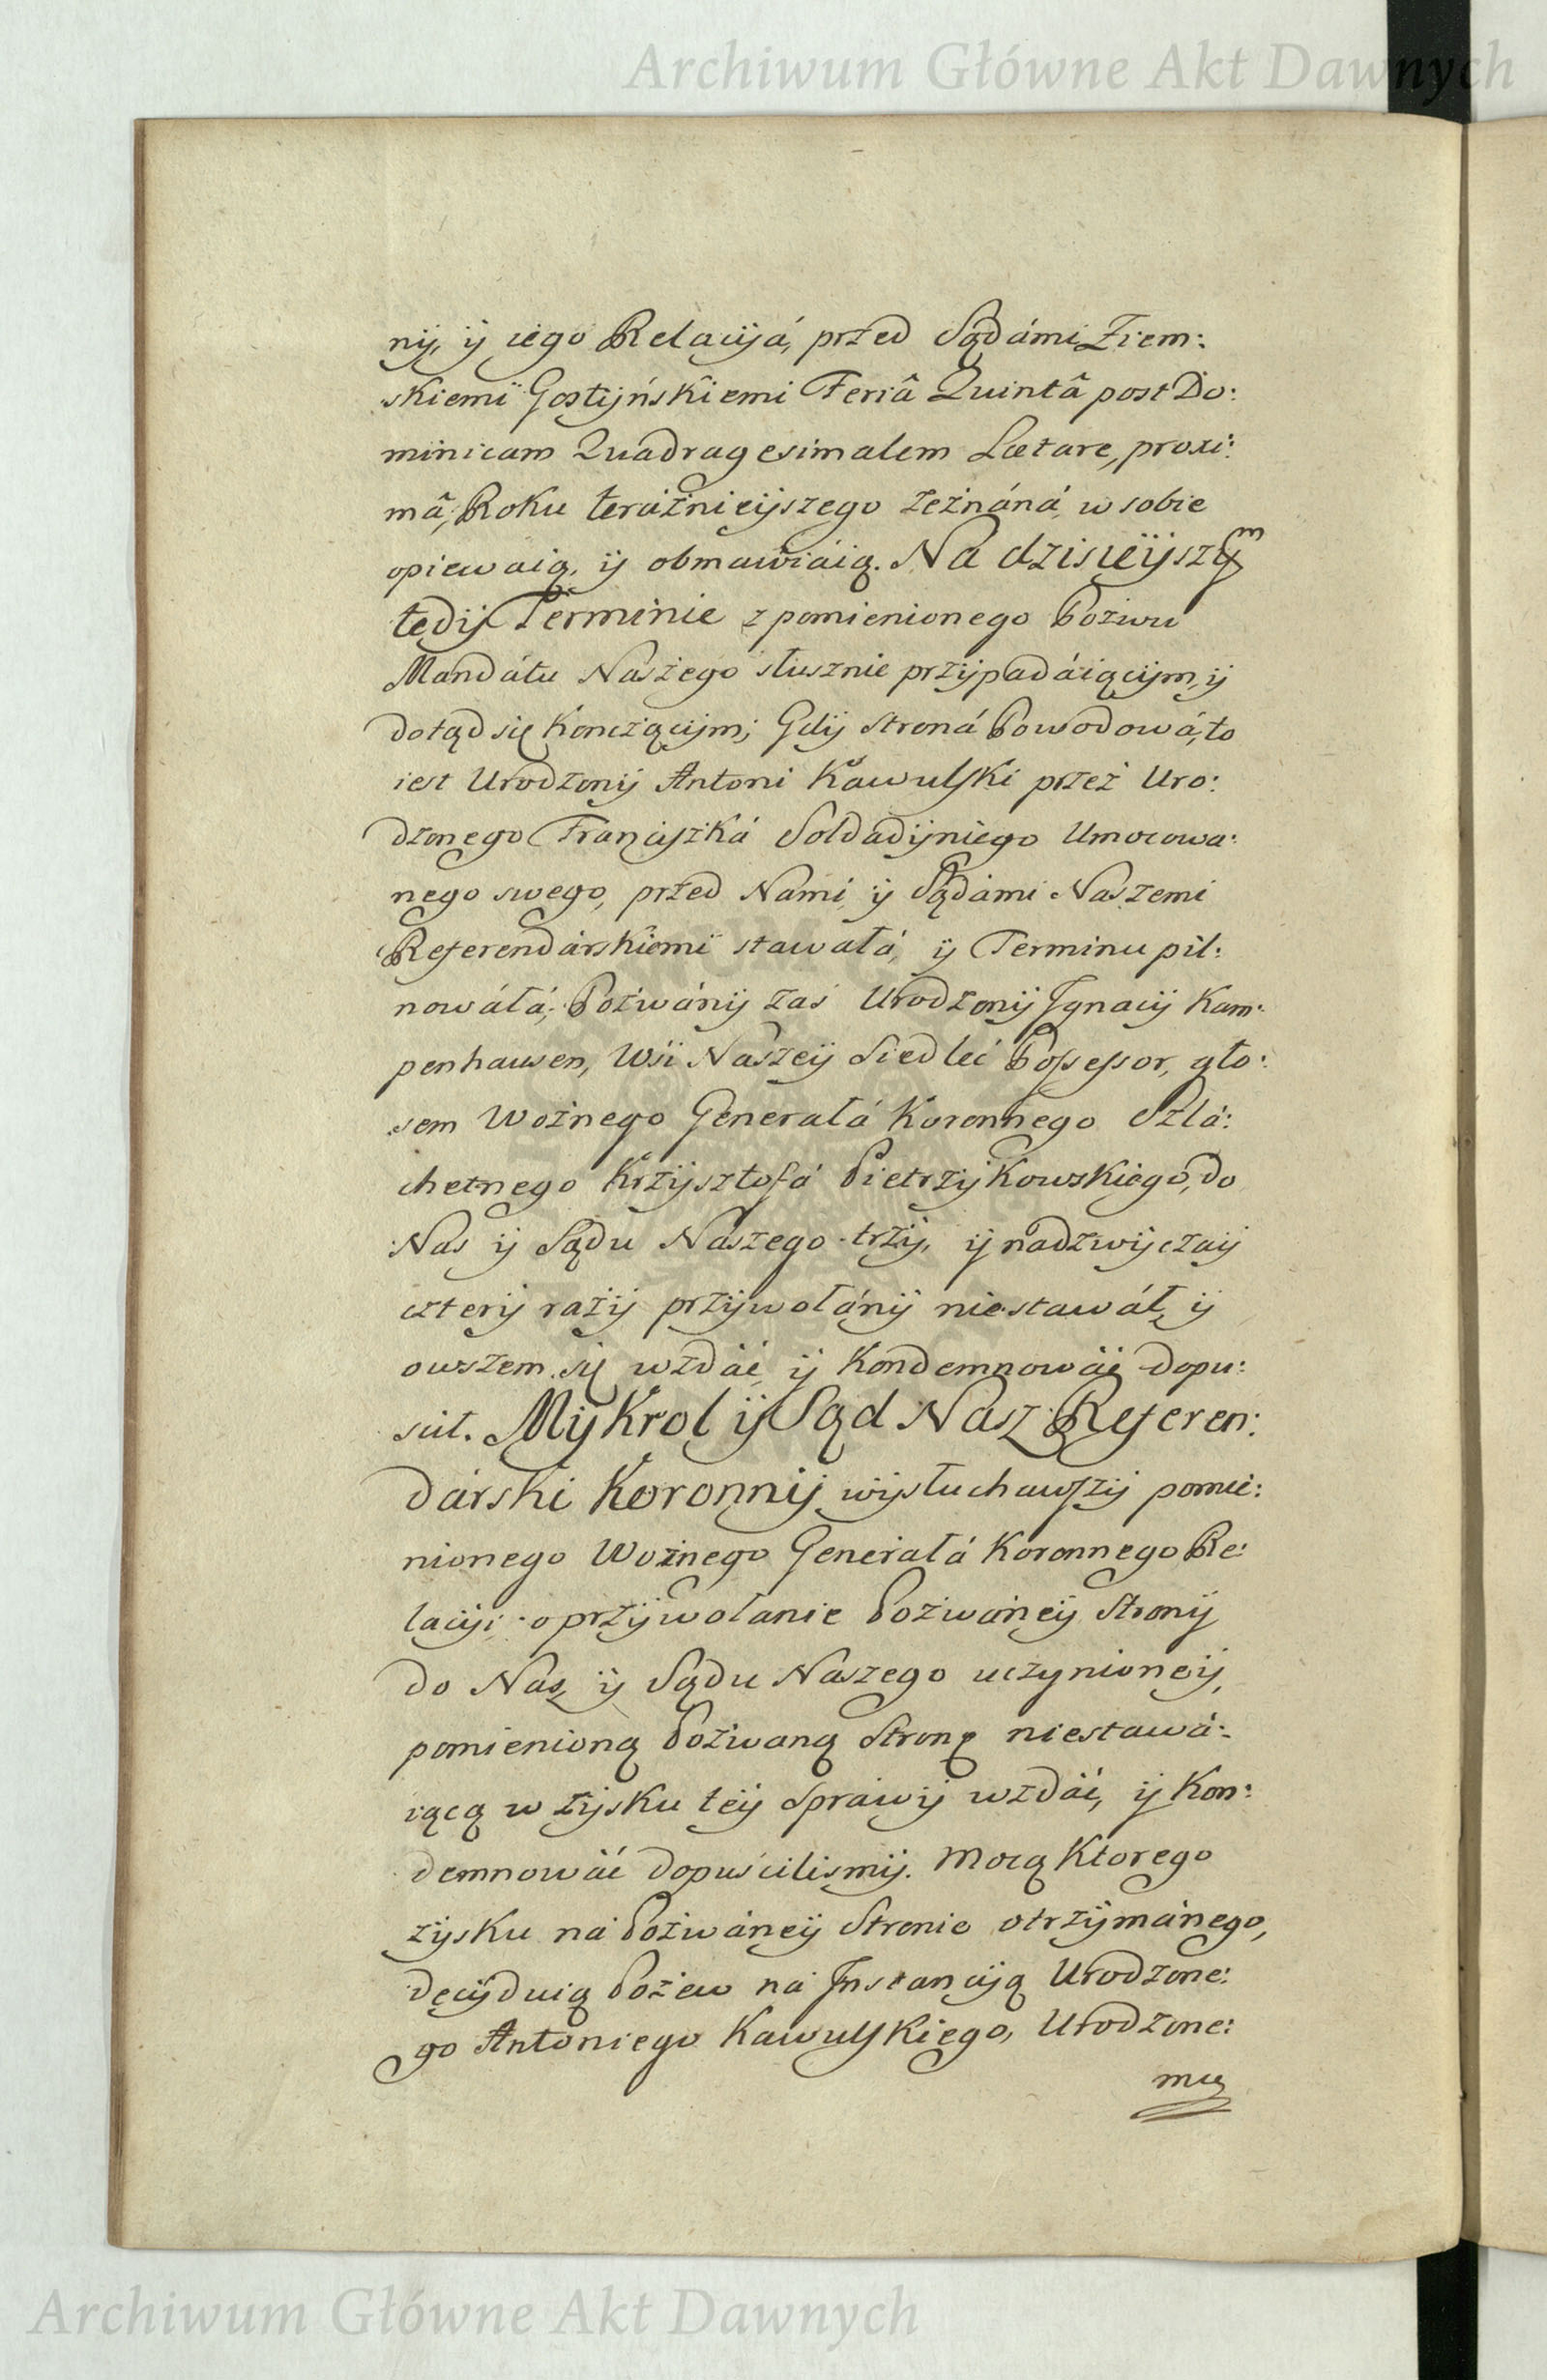 Archiwum Główne Akt Dawnych
nij, ij iego Relacijá, przed Sądámi Ziem:
skiemi Gostijńskiemi Feriâ Quintâ post Do:
minicam Quadragesimalem Lætare, proxi:
mâ, Roku teráźnieijszego zeznáná, w sobie
opiewaią, ij obmawiáią. Na dzisieijszym
tedij Terminie z pomienionego Pozwu
Mandátu Naszego słusznie przijpadáiącijm, ij
dotąd się Kończącijm; Gdij Stroná Powodowá, to
iest Urodzonij Antoni Kawulski przez Uro:
dzonego Franciszká Soldadijniego Umocowa:
nego swego, przed Nami, ij Sądámi Naszemi
Referendárskiemi stawałá, ij Terminu pil:
nowáłá; Pozwánij zaś Urodzonij Ignacij Kam:
penhausen, Wsi Naszeij Siedleć Possessor, gło:
sem Woźnego Generałá Koronnego Szlá:
chetnego Krzijsztofá Pietrzijkowskiego, do
Nas ij Sądu Naszego trzij, ij nadzwijczaij
czterij razij przijwołánij niestawáł, ij
owszem się wzdáć, ij Kondemnowáć dopu:
ścił. Mij Krol ij Sąd Nasz Referen:
dárski Koronnij wijsłuchawszij pomie:
nionego Woźnego Generałá Koronnego Re:
laciji o przijwołanie Pozwáneij Stronij
do Nas, ij Sądu Naszego uczynioneij,
pomienioną Pozwaną Stronę niestawá:
iącą w zijsku teij Sprawij wzdáć, ij Kon:
demnowáć dopuścilismij. Mocą Ktorego
zijsku ná Pozwáneij Stronie otrzijmánego,
decijduią Pozew ná Instanciją Urodzone:
go Antoniego Kawulskiego, Urodzone:
mu
Archiwum Główne Akt Dawnych